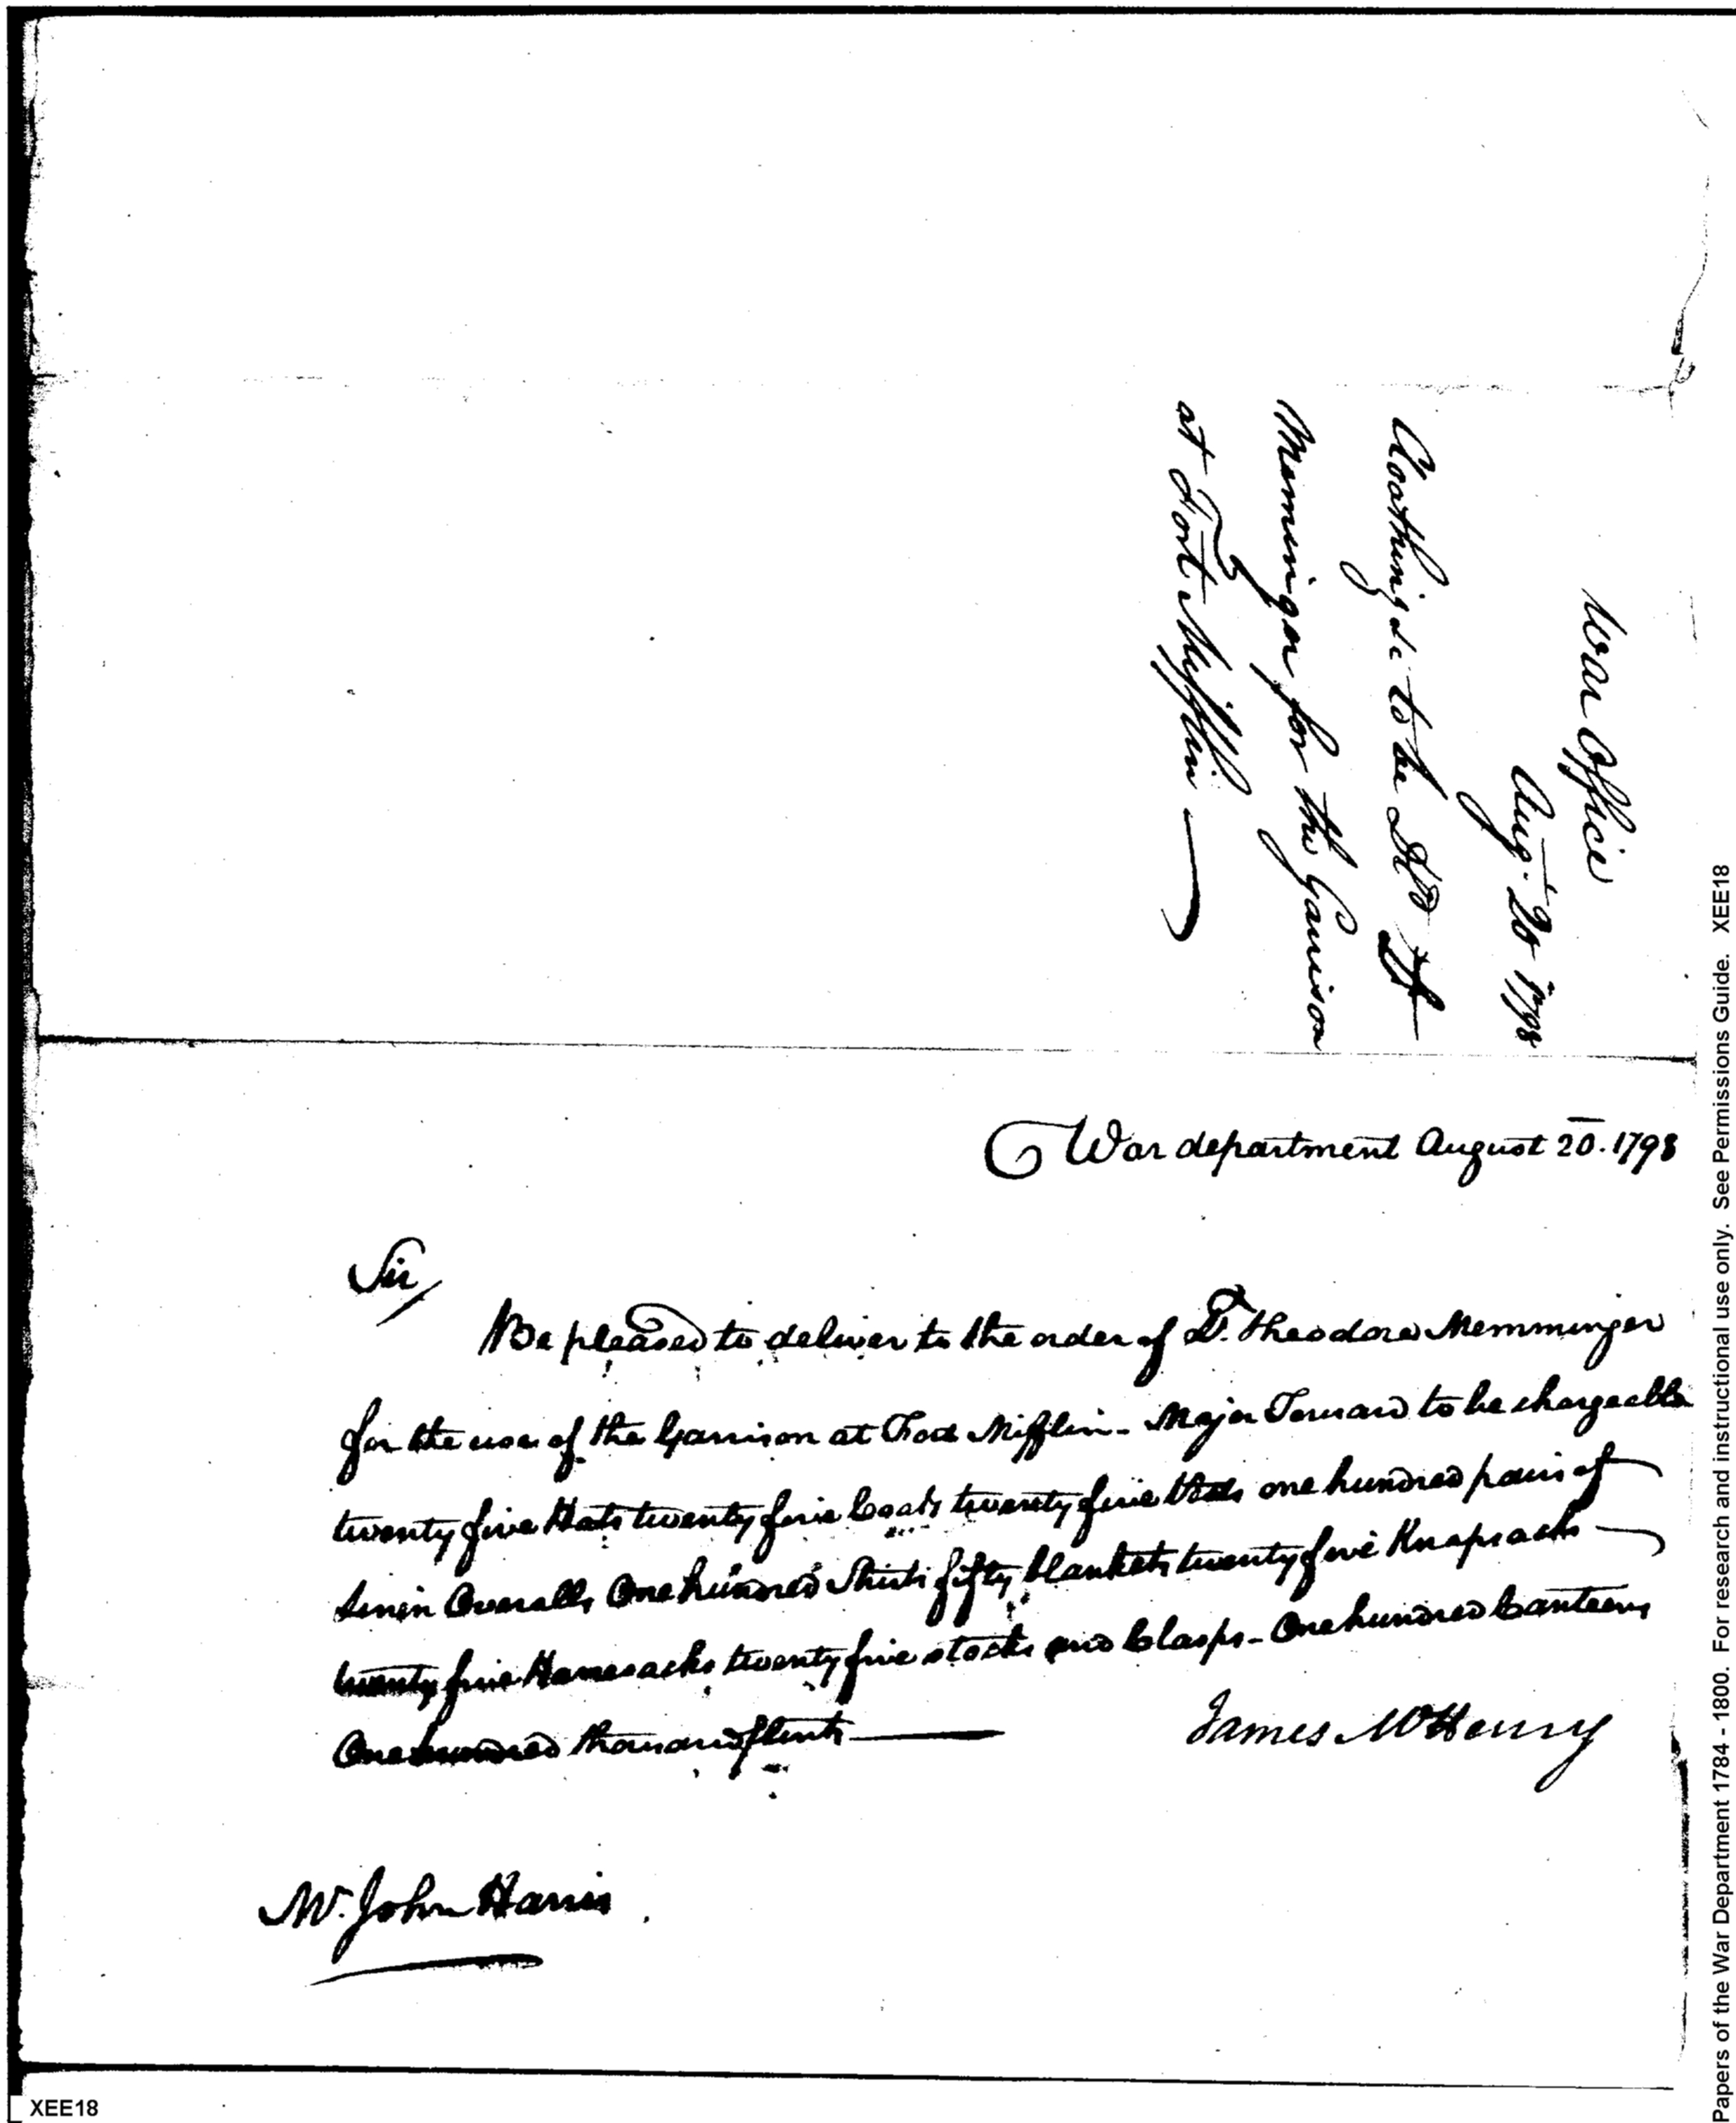 War Office
Aug. 20 1798
Cloathing &c to be DD Lt
Memminger for the Garrison
at Fort Mifflin
War department August 20. 1798
Sir
Be pleased to deliver to the order of Lt. Theodore Memminger
for the use of the Garrison at Fort Mifflin - Major Tousard to be chargeable
twenty five Hats twenty five Coats twenty five Vests one hundred pairs of
Linen Overalls One hundred Shirts fifty blankets twenty five Knapsacks
twenty five Haversacks twenty five stocks and Clasps - One hundred Canteens
One hundred thousand flints
James McHenry
Mr. John Harris
Papers of the War Department 1784 - 1800. For research and instructional use only. See Permissions Guide. XEE18
XEE18